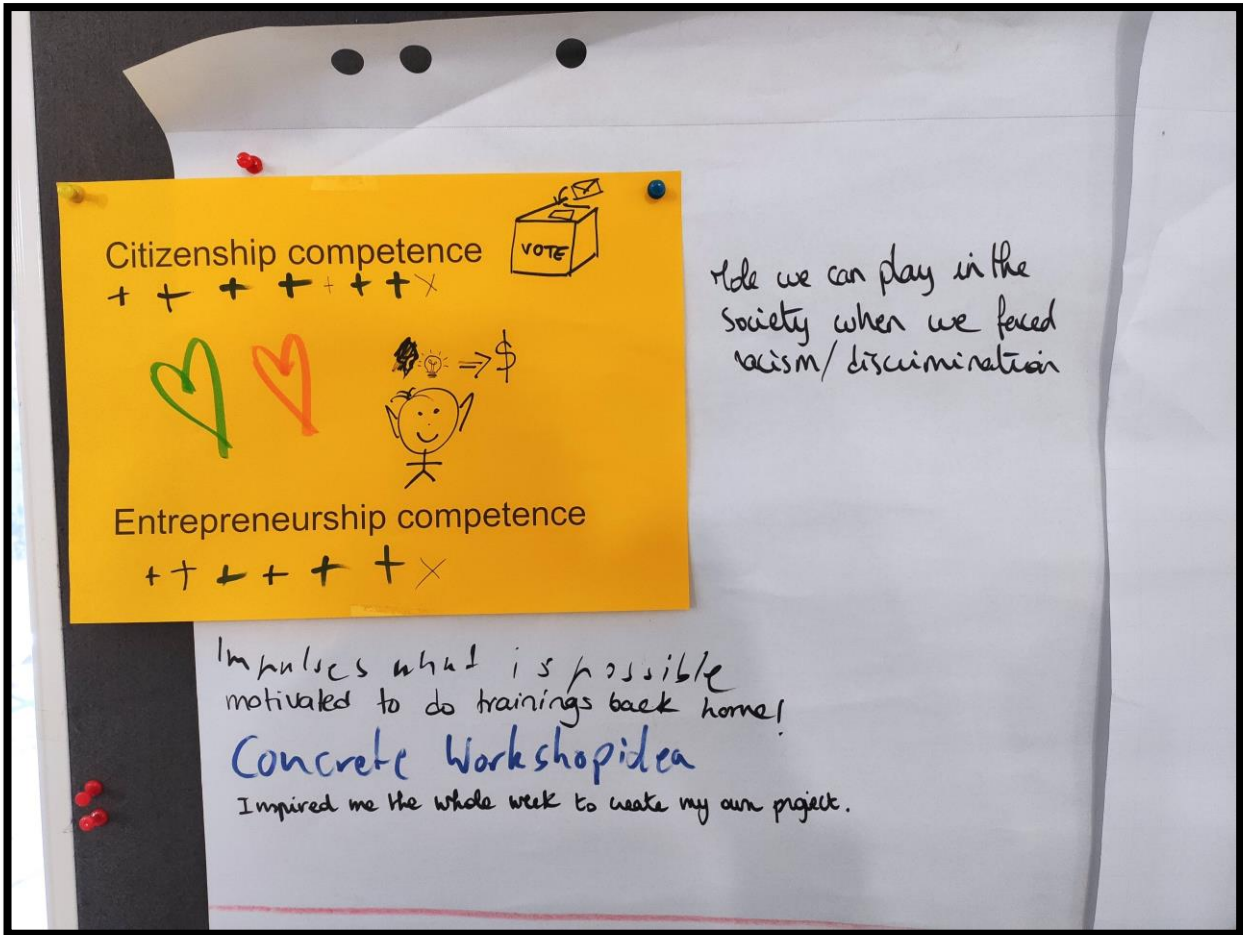 VOTE
Citizenship competence
+ + + + + + + ×
⇒ $
Entrepreneurship competence
+ + + + + + ×
Role we can play in the
Society when we faced
racism/ discrimination
Impulses what is possible
motivated to do trainings back home!
Concrete Workshopidea
Inspired me the whole week to create my own project.